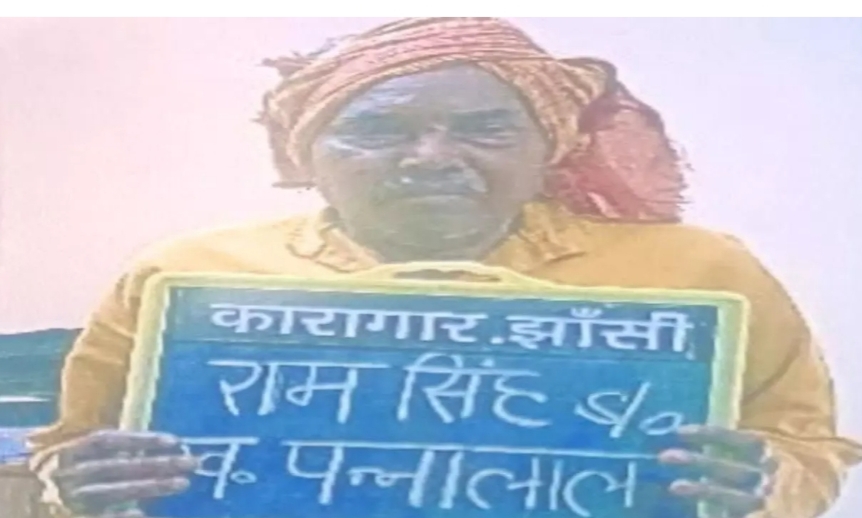 कारागार.झाँसी
राम सिंह S/o
स्व. पन्नालाल